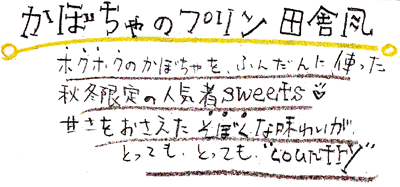 かぼちゃのプリン 田舎風
ホクホクのかぼちゃを、ふんだんに使った
秋冬限定の人気者sweets
甘さをおさえたそぼくな味わいが、
とっても、とっても、"country"